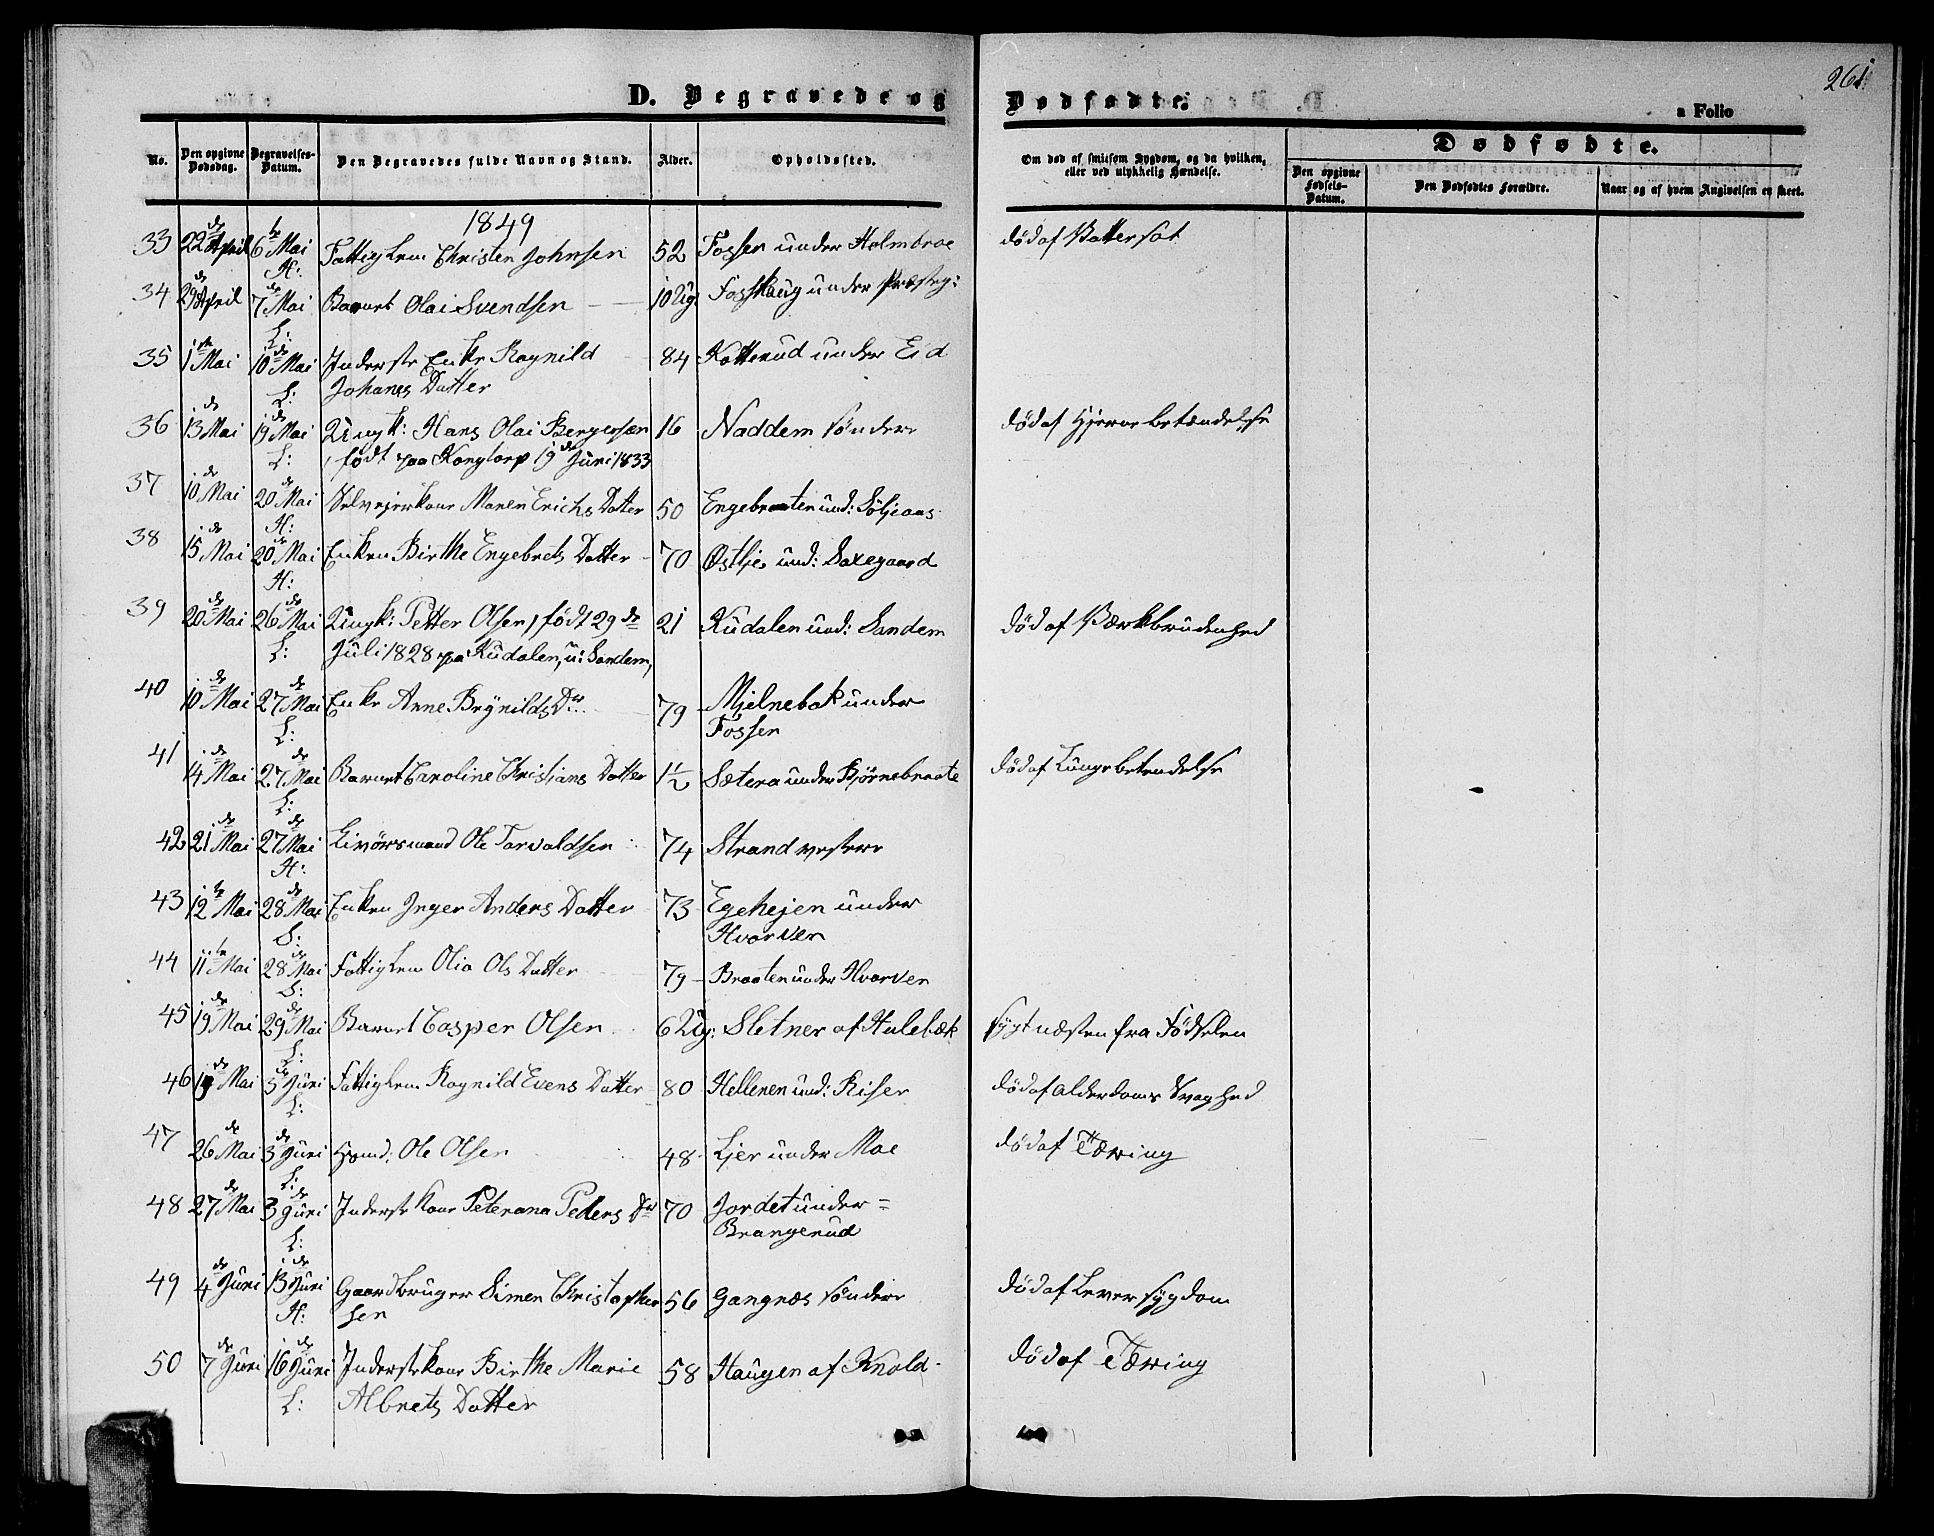 261.
D. Begravede og Dødfødte.
a Folio
No.
Den opgivne Dødsdag.
Begravelses-Datum.
Den Begravedes fulde Navn og Stand.
Alder.
Opholdssted.
Om død af smitsom Sygdom, og da hvilken, eller ved ulykkelig Hændelse.
Dødfødte.
Den opgivne Fødsels-Datum.
Den Dødfødtes Forældre.
Naar og af hvem Angivelsen er skeet.
1849
33 22de April 6te Mai Fattiglem Christen Johnsen 52 Fosser under Holmbroe død af Vattersot
H:
34 29de April 7de Mai Barnet Olai Svendsen 10 Ug: Fosshaug under Præsteg:
L:
35 1ste Mai 10de Mai Inderste Enke Ragnild 84 Kotterud under Eid
L: Johanes Datter
36 13de Mai 19de Mai Ungk: Hans Olai Bergersen 16 Naddem søndre død af Hjernebetændelse
L: , født paa Kongtorp 19de Juni 1833
37 10de Mai 20de Mai Selvejerkone Maren Erichs Datter 50 Engebraaten und: Søljeaas
H:
38 15de Mai 20de Mai Enken Birthe Engebrets Datter 70 Østlie und: Saxegaard
H:
39 20de Mai 26de Mai Ungk: Petter Olsen, født 29de 21 Kudalen und: Sandem død af Værkbrudenhed
L: Juli 1828 paa Kudalen, u: Sandem,
40 10de Mai 27de Mai Enke Anne Brynilds Dr 79 Mjelnebak under
L: Fosser
41 14de Mai 27de Mai Barnet Caroline Christians Datter 1½ Sætera under Bjørnebraate død af Lungebetendelse
L:
42 21de Mai 27de Mai Livørsmand Ole Torvaldsen 74 Strand vestere
H:
43 12te Mai 28de Mai Enken Inger Anders Datter 73 Egehejen under
S: Hvarven
44 11te Mai 28de Mai Fattiglem Olia Ols Datter 79 Braaten under Hvarven
S:
45 19de Mai 29de Mai Barnet Casper Olsen 6 Ug: Sletner af Hulebæk sygt næsten fra Fødselen
L:
46 19de Mai 3de Juni Fattiglem Ragnild Evens Datter 80 Hellenen und: Riser død af Alderdoms Svaghed
L:
47 26de Mai 3de Juni Hmd: Ole Olsen 48 Lier under Moe død af Tæring
L:
48 27de Mai 3de Juni Inderst kone Peterana Peders Dr 70 Jordet under=
L: Brangerud
49 4de Juni 13de Juni Gaardbruger Simen Christopher 56 Gangnæs søndere død af Leversygdom
H: sen
50 7de Juni 16de Juni Inderstekone Birthe Marie 58 Haugen af Knold død af Tæring
L: Albrets Datter